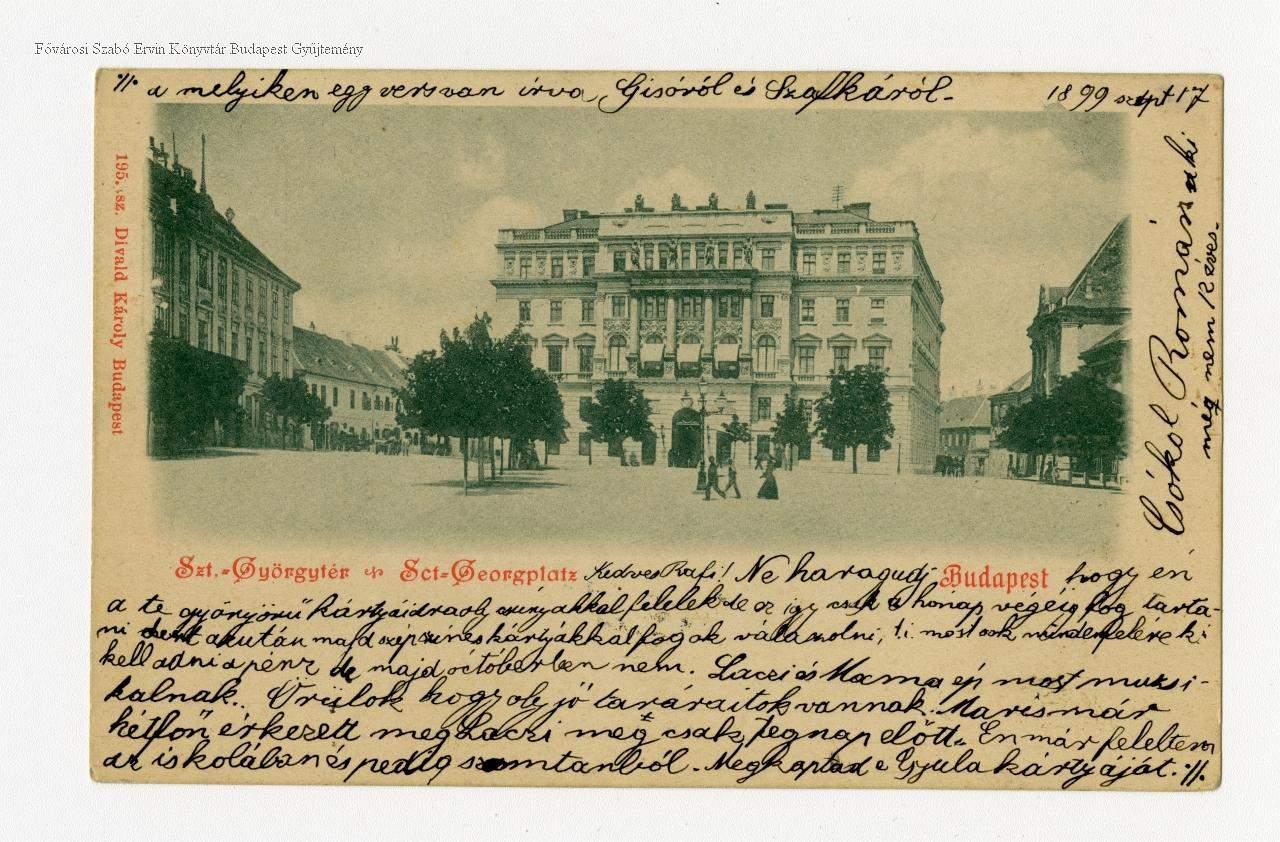 Fővárosi Szabó Ervin Könyvtár Budapest Gyűjtemény
·//. a melyiken egy vers van írva, Gisóról és Szafkáról. 1899 szept 17
195. sz. Divald Károly Budapest
Csókol Romá
még nem Kéves.
Szt.-Györgytér Sct-Georgplatz Kedves Rafi! Ne haragudj Budapest hogy én
a te gyönyörű kártyáidra oly csúnyákkal felelek de ez így csak a hónap végéig fog tarta-
ni azután majd szép színes kártyákkal fogok válaszolni, most csak mindenfélére ki
kell adni a pénz de majd octóberben nem. Laczi és Mama ép most muzsi-
kálnak. Örülök hogy oly jó tanáraitok vannak. Maris már
hétfőn érkezett meg Laczi még csak tegnap előtt. Én már feleltem
az iskolában és pedig számtanból. Megkaptad e Gyula kártyáját. ·//.